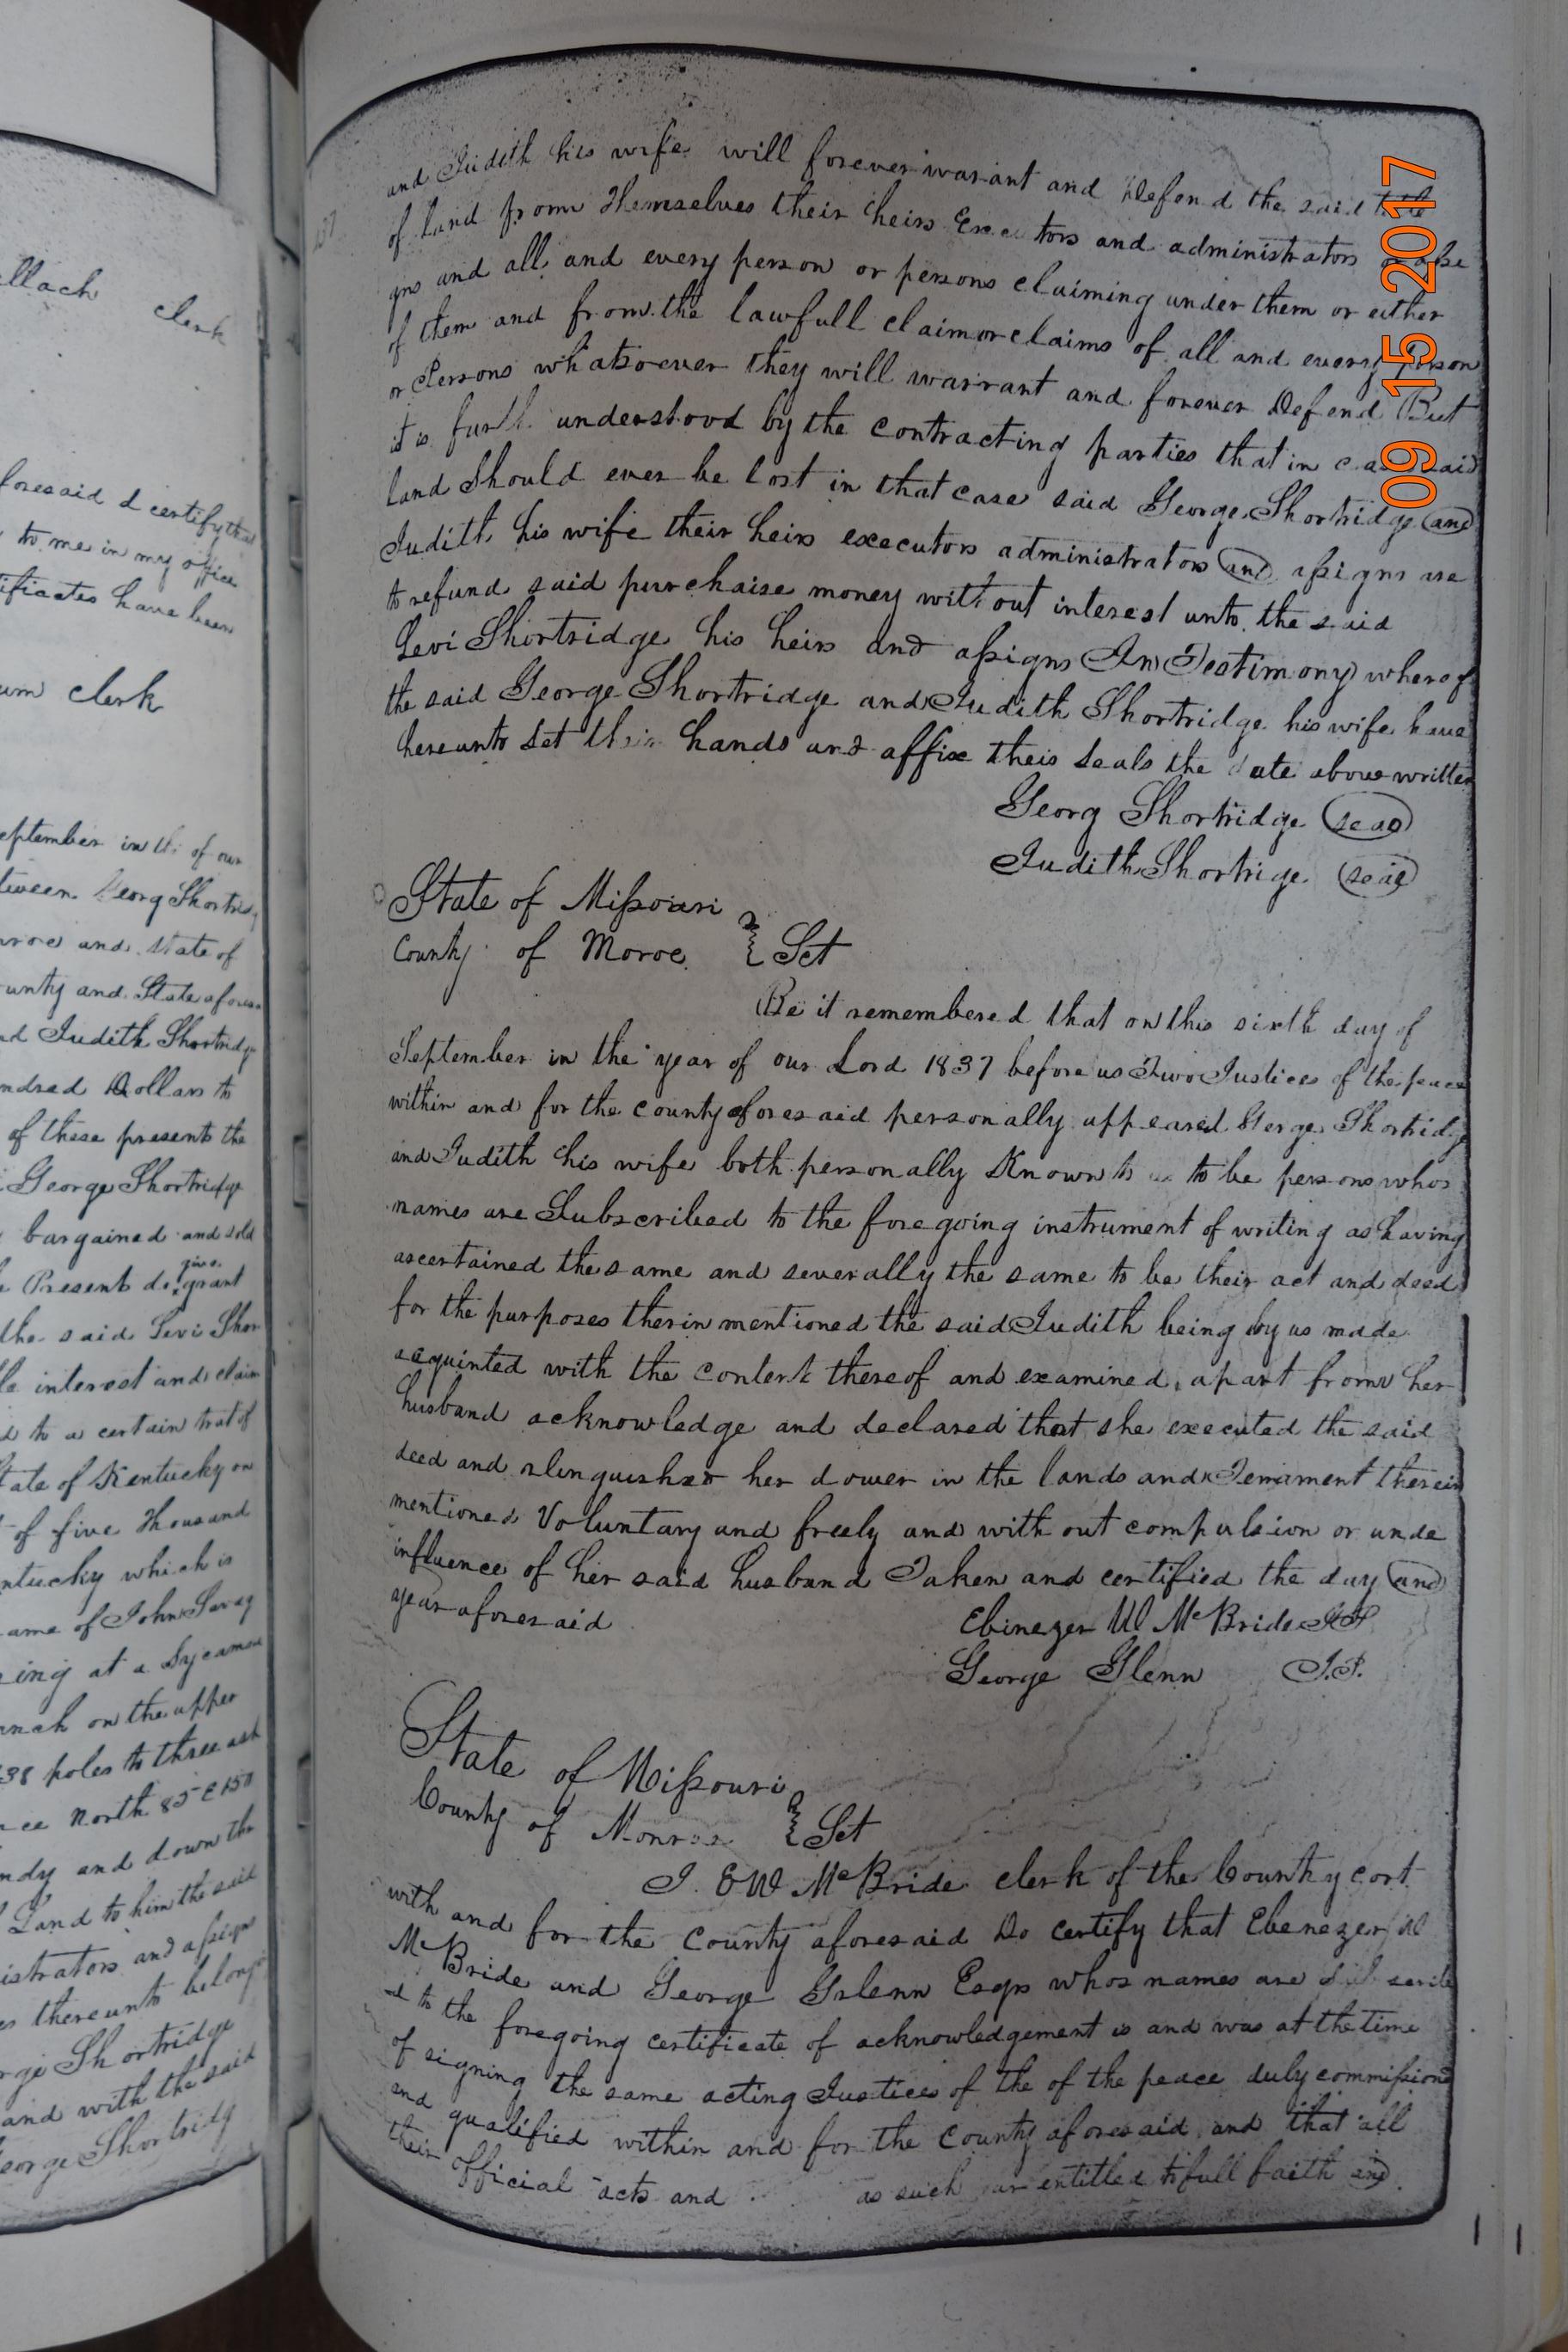 llach clerk
foresaid d certify that
to me in my office
ificates have been
um clerk
eptember in th of our
tween Georg Shortridg
nroe and State of
unty and State afores
nd Judith Shortridg
ndred Dollars to
of these presents the
George Shortridge
bargained and sold
give
Present do grant
the said Levi Shor
le interest and claim
d to a certain trat of
tate of Kentucky on
of five Thousand
ntucky which is
ame of John Savag
ing at a Sycamore
anch on the upper
38 poles to three ash
ce North 85 E 150
ndy and down the
Land to him the said
istrators and assigns
es thereunto belong
rge Shortridge
and with the said
eorge Shortridg
and Judith his wife will forever warant and Defend the said title
of land from Themselves their heirs Executors and administrators or asse
gns and all and every person or persons claiming under them or either
of them and from the lawfull claim or claims of all and every person
or Persons whatsoever they will warrant and forever Defend But
it is furth understood by the contracting parties that in case said
land Should ever be lost in that case said George Shortridge and
Judith his wife their heirs executors administrators and assigns are
to refund said purchaise money without interest unto the said
Levi Shortridge his heirs and assigns In Testimony whereof
the said George Shortridge and Judith Shortridge his wife have
hereunto set their hands and affix theis seals the date above written
Georg Shortridge seal
Judith Shortrige seal
State of Missouri
County of Moroe } Sct
Be it remembered that on this sixth day of
September in the year of our Lord 1837 before us Two Justices of the peace
within and for the county aforesaid personally appeared George Shortridge
and Judith his wife both personally Known to us to be persons whos
names are Subscribed to the foregoing instrument of writing as having
ascertained the same and severally the same to be their act and deed
for the purposes therin mentioned the said Judith being by us made
acquinted with the content thereof and examined apart from her
husband acknowledge and declared that she executed the said
deed and rlinguished her dower in the lands and Tenament therein
mentioned Voluntary and freely and with out compulsion or unde
influence of her said husband Taken and certified the day and
year aforesaid
Ebinezer W McBride JP
George Glenn J.P.
State of Missouri
County of Monroe } Sct
I E W McBride clerk of the County cort
with and for the County aforesaid Do certify that Ebenezer W
McBride and George Grlenn Esqrs whos names are subscribe
d to the foregoing certificate of acknowledgement is and was at the time
of signing the same acting Justices of the of the peace duly commission
and qualified within and for the County aforesaid and that all
their official acts and as such ar entitled to full faith and
09 15 2017